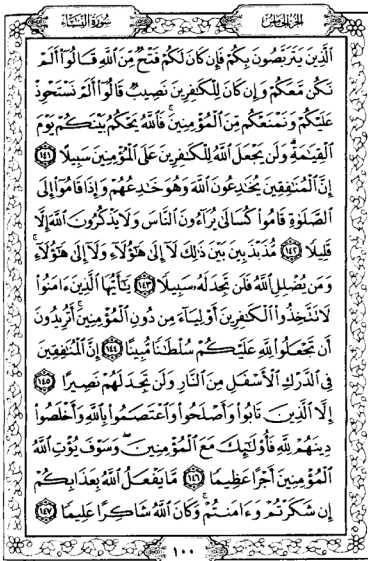 سورة النساء
الجزء الخامس
ٱلَّذِينَ يَتَرَبَّصُونَ بِكُمْ فَإِن كَانَ لَكُمْ فَتْحٌ مِّنَ ٱللَّهِ قَالُوٓا۟ أَلَمْ
نَكُن مَّعَكُمْ وَإِن كَانَ لِلْكَـٰفِرِينَ نَصِيبٌ قَالُوٓا۟ أَلَمْ نَسْتَحْوِذْ
عَلَيْكُمْ وَنَمْنَعْكُم مِّنَ ٱلْمُؤْمِنِينَ ۚ فَٱللَّهُ يَحْكُمُ بَيْنَكُمْ يَوْمَ
ٱلْقِيَـٰمَةِ ۗ وَلَن يَجْعَلَ ٱللَّهُ لِلْكَـٰفِرِينَ عَلَى ٱلْمُؤْمِنِينَ سَبِيلًا ١٤١
إِنَّ ٱلْمُنَـٰفِقِينَ يُخَـٰدِعُونَ ٱللَّهَ وَهُوَ خَـٰدِعُهُمْ وَإِذَا قَامُوٓا۟ إِلَى
ٱلصَّلَوٰةِ قَامُوا۟ كُسَالَىٰ يُرَآءُونَ ٱلنَّاسَ وَلَا يَذْكُرُونَ ٱللَّهَ إِلَّا
قَلِيلًا ١٤٢ مُّذَبْذَبِينَ بَيْنَ ذَٰلِكَ لَآ إِلَىٰ هَـٰٓؤُلَآءِ وَلَآ إِلَىٰ هَـٰٓؤُلَآءِ ۚ
وَمَن يُضْلِلِ ٱللَّهُ فَلَن تَجِدَ لَهُۥ سَبِيلًا ١٤٣ يَـٰٓأَيُّهَا ٱلَّذِينَ ءَامَنُوا۟
لَا تَتَّخِذُوا۟ ٱلْكَـٰفِرِينَ أَوْلِيَآءَ مِن دُونِ ٱلْمُؤْمِنِينَ ۚ أَتُرِيدُونَ
أَن تَجْعَلُوا۟ لِلَّهِ عَلَيْكُمْ سُلْطَـٰنًا مُّبِينًا ١٤٤ إِنَّ ٱلْمُنَـٰفِقِينَ
فِى ٱلدَّرْكِ ٱلْأَسْفَلِ مِنَ ٱلنَّارِ وَلَن تَجِدَ لَهُمْ نَصِيرًا ١٤٥
إِلَّا ٱلَّذِينَ تَابُوا۟ وَأَصْلَحُوا۟ وَٱعْتَصَمُوا۟ بِٱللَّهِ وَأَخْلَصُوا۟
دِينَهُمْ لِلَّهِ فَأُو۟لَـٰٓئِكَ مَعَ ٱلْمُؤْمِنِينَ ۖ وَسَوْفَ يُؤْتِ ٱللَّهُ
ٱلْمُؤْمِنِينَ أَجْرًا عَظِيمًا ١٤٦ مَّا يَفْعَلُ ٱللَّهُ بِعَذَابِكُمْ
إِن شَكَرْتُمْ وَءَامَنتُمْ ۚ وَكَانَ ٱللَّهُ شَاكِرًا عَلِيمًا ١٤٧
١٠٠